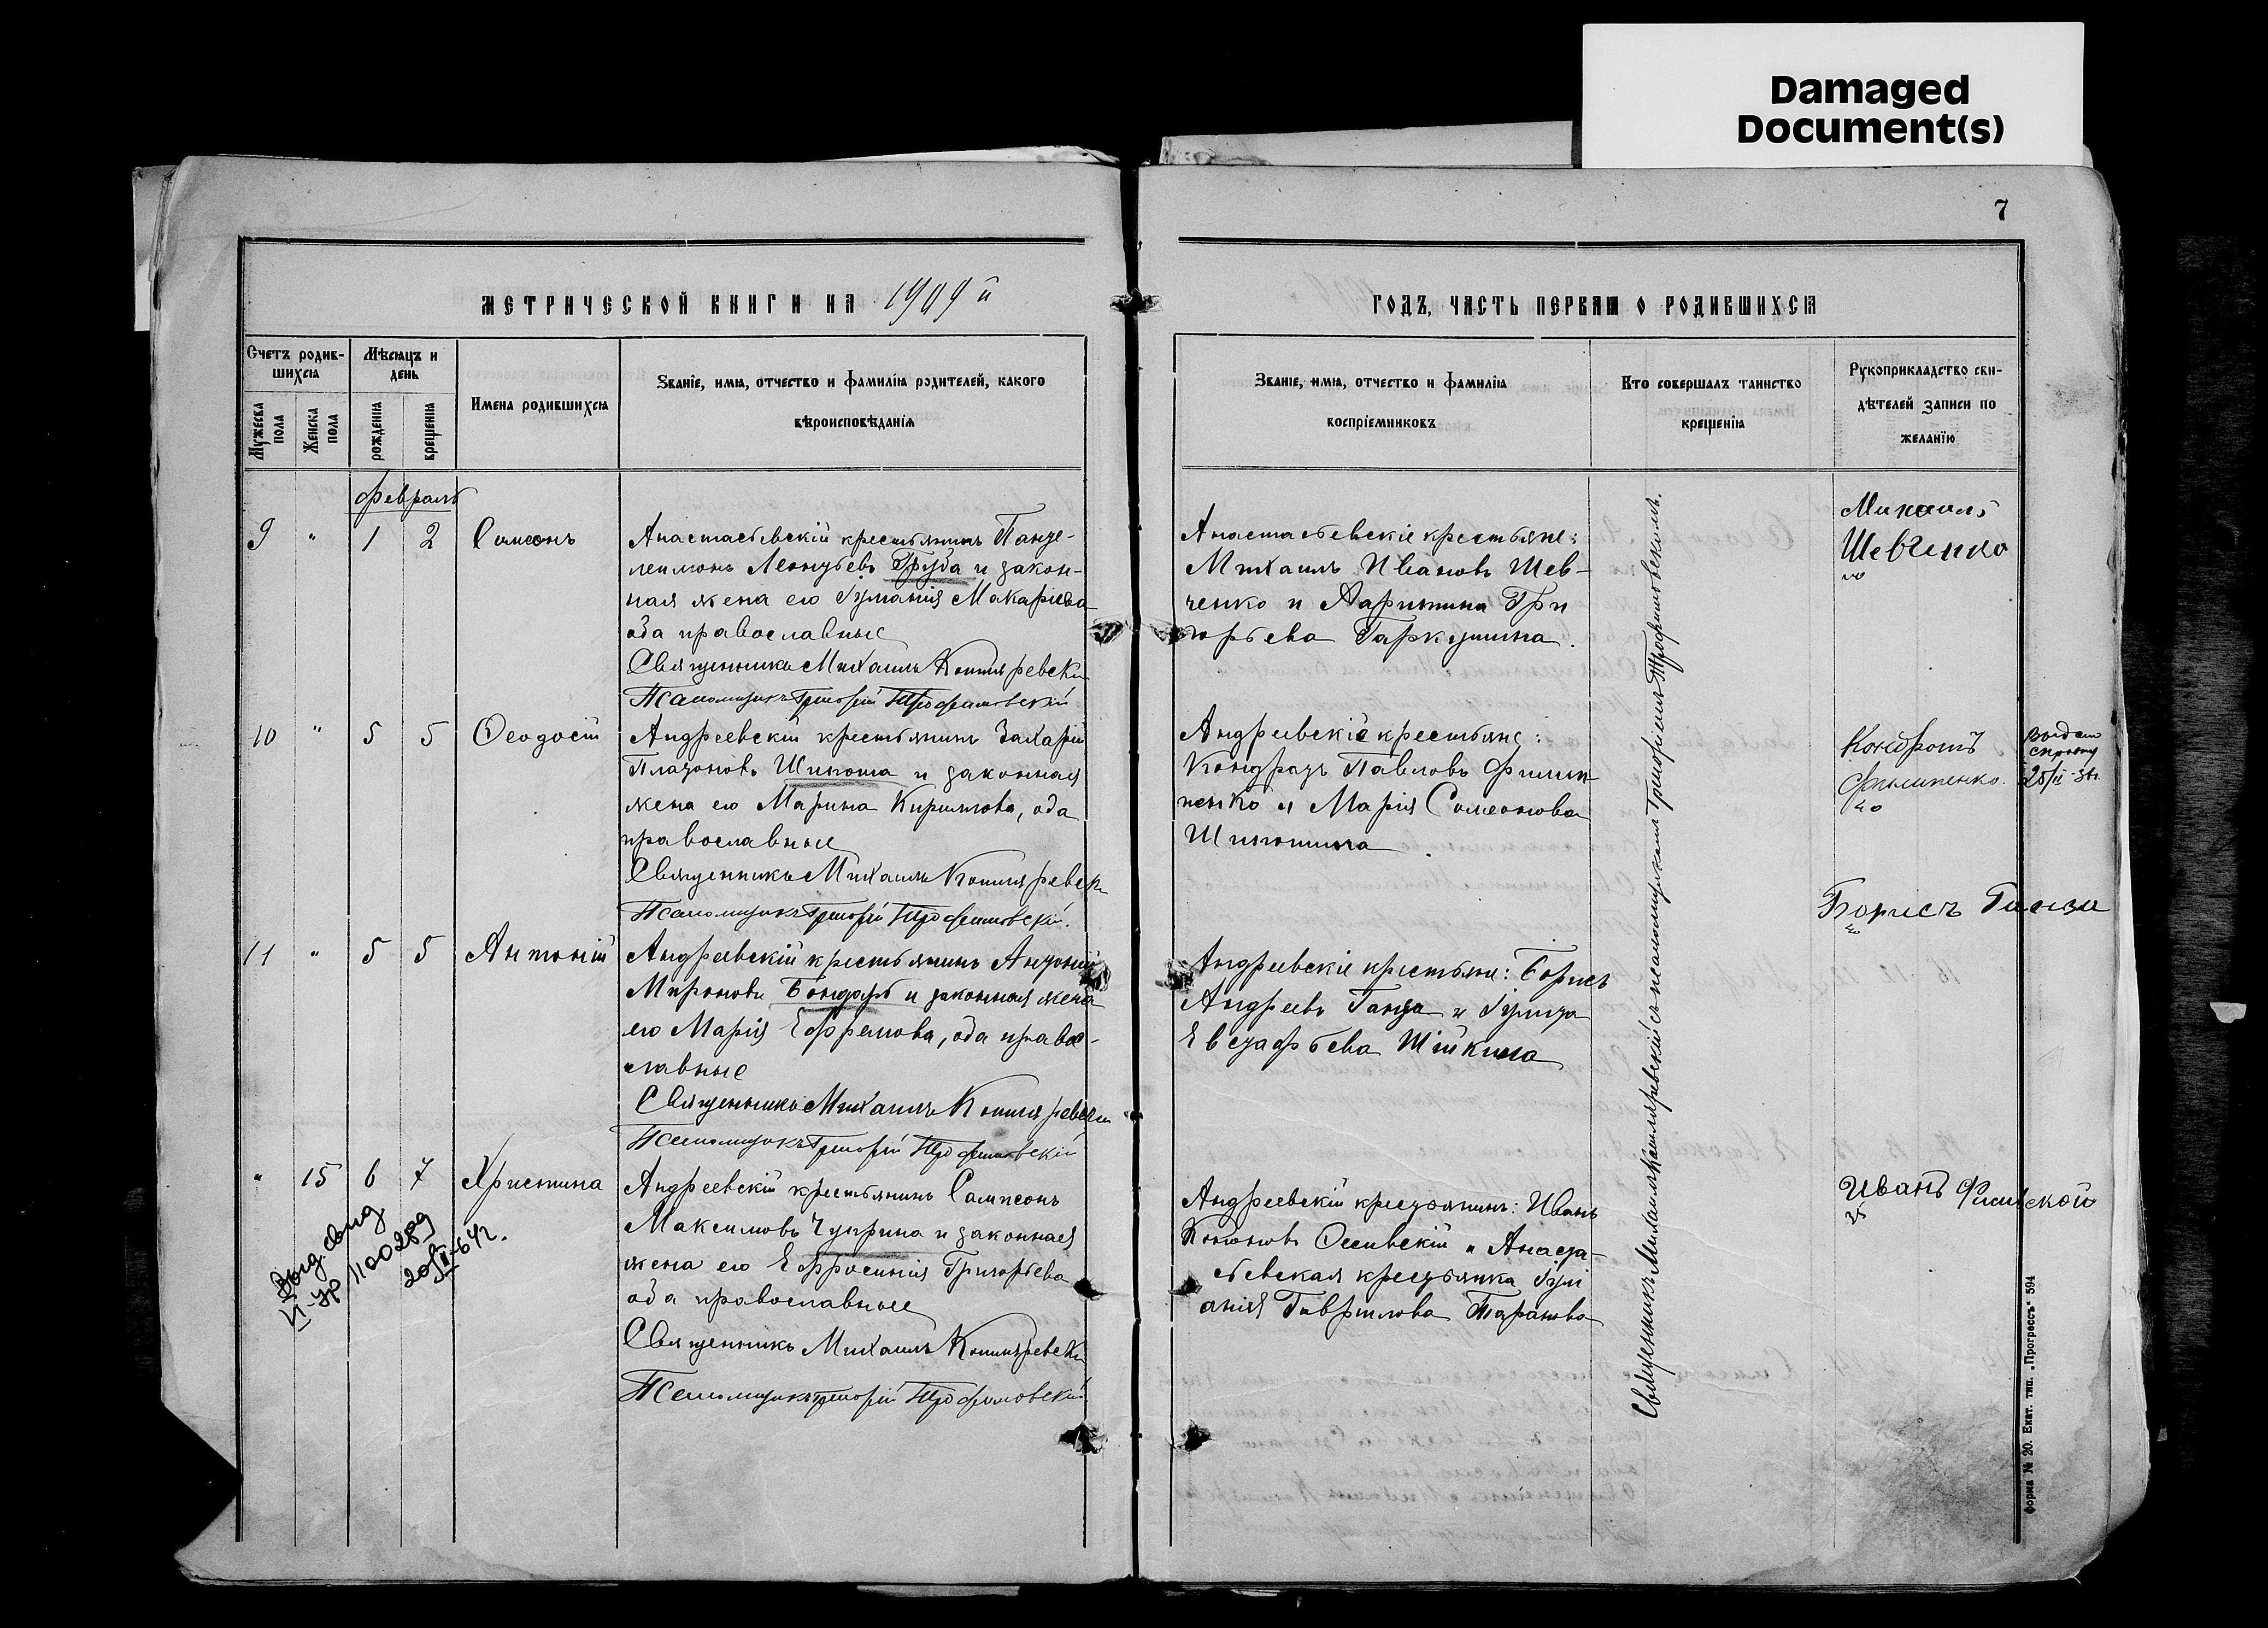 Damaged
Document(s)
7
МЕТРИЧЕСКОЙ КНИГИ НА 1909й
ГОДЪ, ЧАСТЬ ПЕРВАЯ О РОДИВШИХСЯ
Счетъ родив-
шихся
Мужеска пола
Женска пола
Мѣсяцъ и
день
рожденія
крещенія
Имена родившихся
Званіе, имя, отчество и фамилія родителей, какого
вѣроисповѣданія
Званіе, имя, отчество и фамилія
воспріемниковъ
Кто совершалъ таинство
крещенія
Рукоприкладство сви-
дѣтелей записи по
желанію
Февраль
9 " 1 2 Симеонъ
Анастасьевскій крестьянинъ Панте-
леимонъ Леонтьевъ Груба и закон-
ная жена его Іуліанія Макаріева
оба православные
Священникъ Михаилъ Котляревскій
Псаломщикъ Григорій Трофимовскій
Анастасьевскіе крестьяне:
Михаилъ Ивановъ Шев-
ченко и Харитина Гри
горьева Гаркушина.
Михаилъ
Шевченко
10 " 5 5 Ѳеодосій
Андреевскій крестьянинъ Захарій
Платоновъ Шикота и законная
жена его Марина Кириллова, оба
православные
Священникъ Михаилъ Котляревскій
Псаломщикъ Григорій Трофимовскій.
Андреевскіе крестьяне:
Кондратъ Павловъ Филип-
пенко и Марія Симеонова
Шикотина
Кондратъ
Филипенко.
Выдана
справку
11 " 5 5 Антоній
Андреевскій крестьянинъ Антоній
Мироновъ Бондарь и законная жена
его Марія Ефремова, оба право-
славные
Священникъ Михаилъ Котляревскій
Псаломщикъ Григорій Трофимовскій
Андреевскіе крестьяне: Борисъ
Андреевъ Ганза и Іулита
Евстафьева Шійкина
Борисъ Ганза
" 15 6 7 Христина
Андреевскій крестьянинъ Сампсонъ
Максимовъ Чуприна и законная
жена его Евфросинія Григорьева
оба православные
Священникъ Михаилъ Котляревскій
Псаломщикъ Григорій Трофимовскій
Андреевскій крестьянинъ: Иванъ
Кононовъ Осиевскій и Анаста-
сьевская крестьянка Іулі
анія Гаврилова Таранова
Иванъ
Выд. свид
20/II-64г.
Священникъ Михаилъ Котляревскій съ псаломщикомъ Григоріемъ Трофимовскимъ.
Форма № 20. Екат. тип. „Прогрессъ“ 594